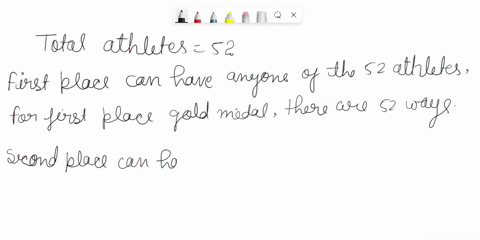 Total athletes = 52
First place can have anyone of the 52 athletes,
for first place gold medal, there are 52 ways.
Second place can ha